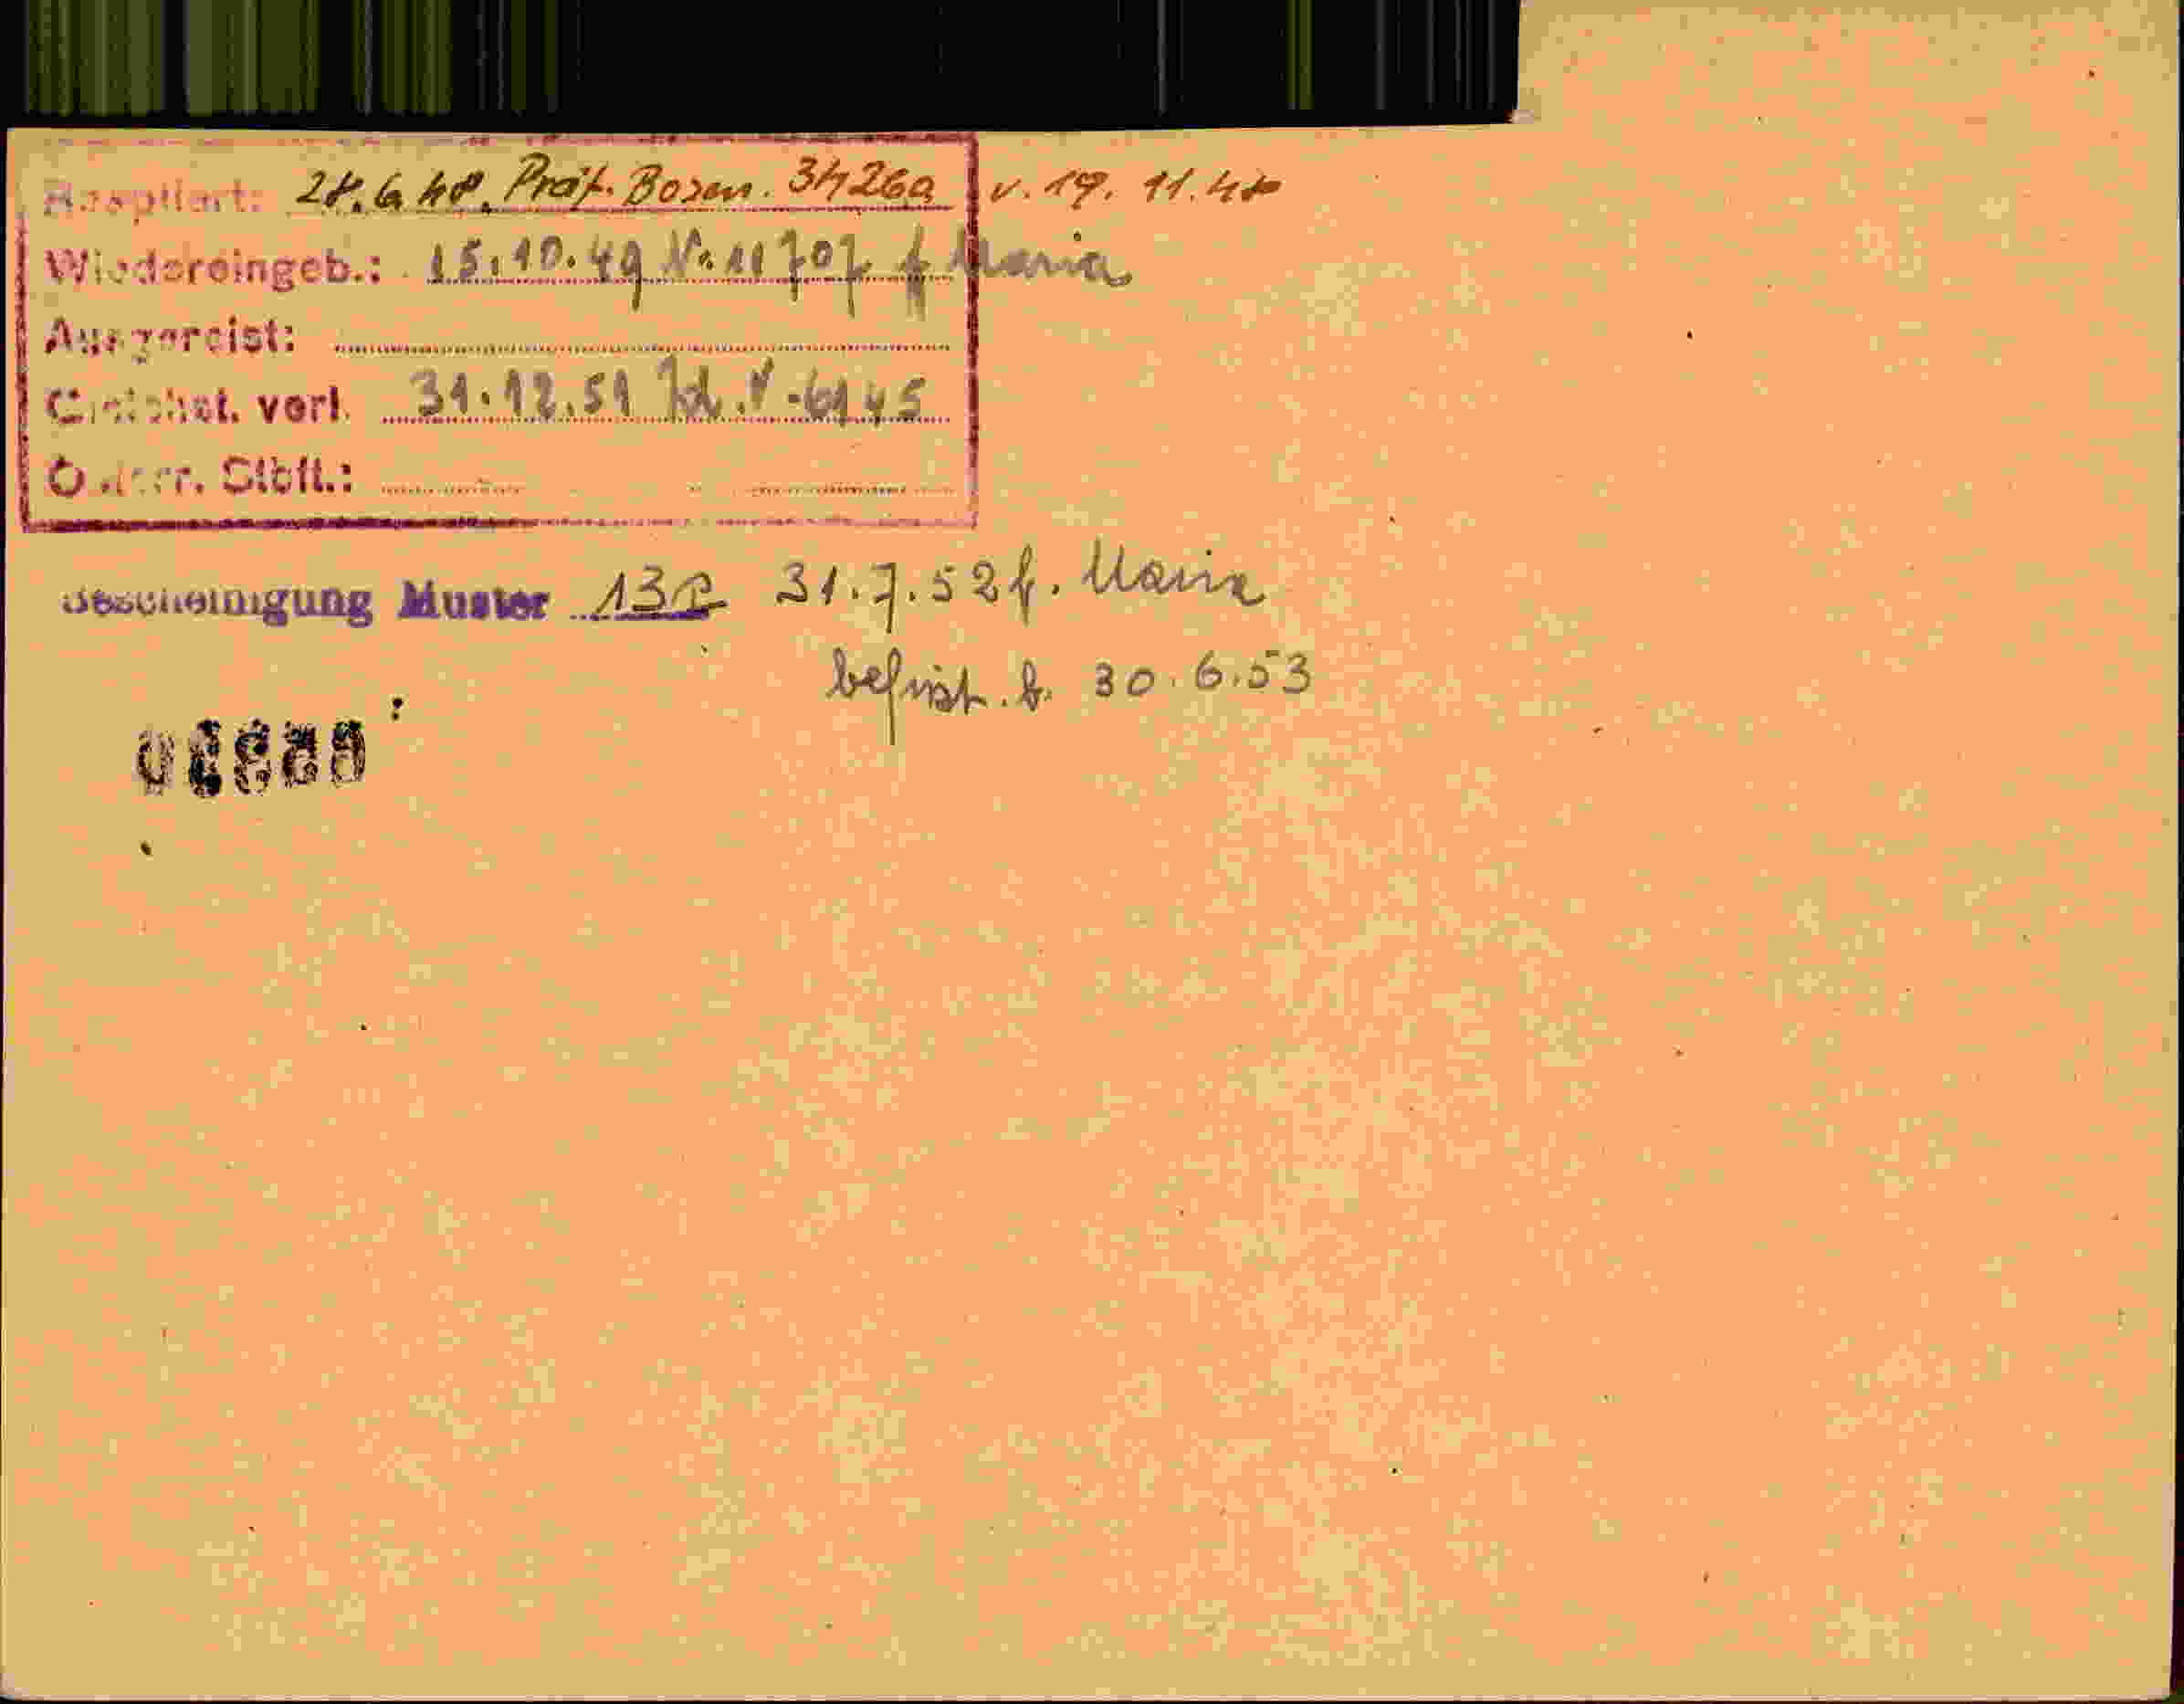 Reoptiert: 28.6.48. Präf. Bozen. 34260 v. 19. 11. 48
Wiedereingeb.: 15.10.49 Nr. 11707 f Maria
Ausgereist:
Gleichst. verl. 31.12.51 Zl. V-6145
Österr. Stbft.:
Bescheinigung Muster 13 31.7.52 f. Maria
befrist. b. 30.6.53